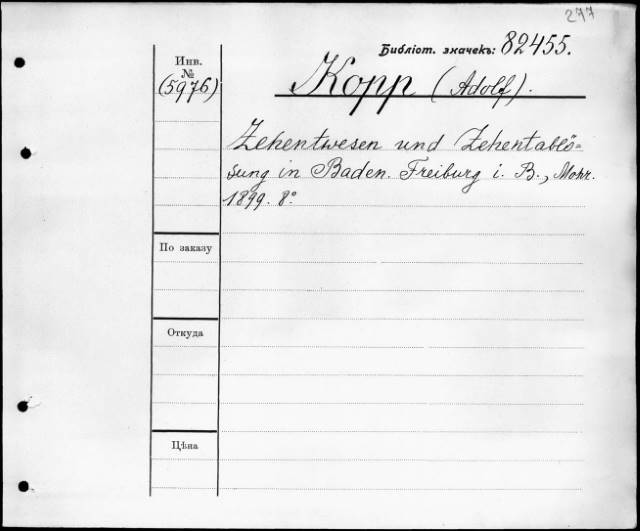 277
Библіот. значекъ: 82455.
Инв.
№
(5976)
Kopp (Adolf).
Zehentwesen und Zehentablö-
sung in Baden. Freiburg i. B., Mohr.
1899. 8°
По заказу
Откуда
Цѣна